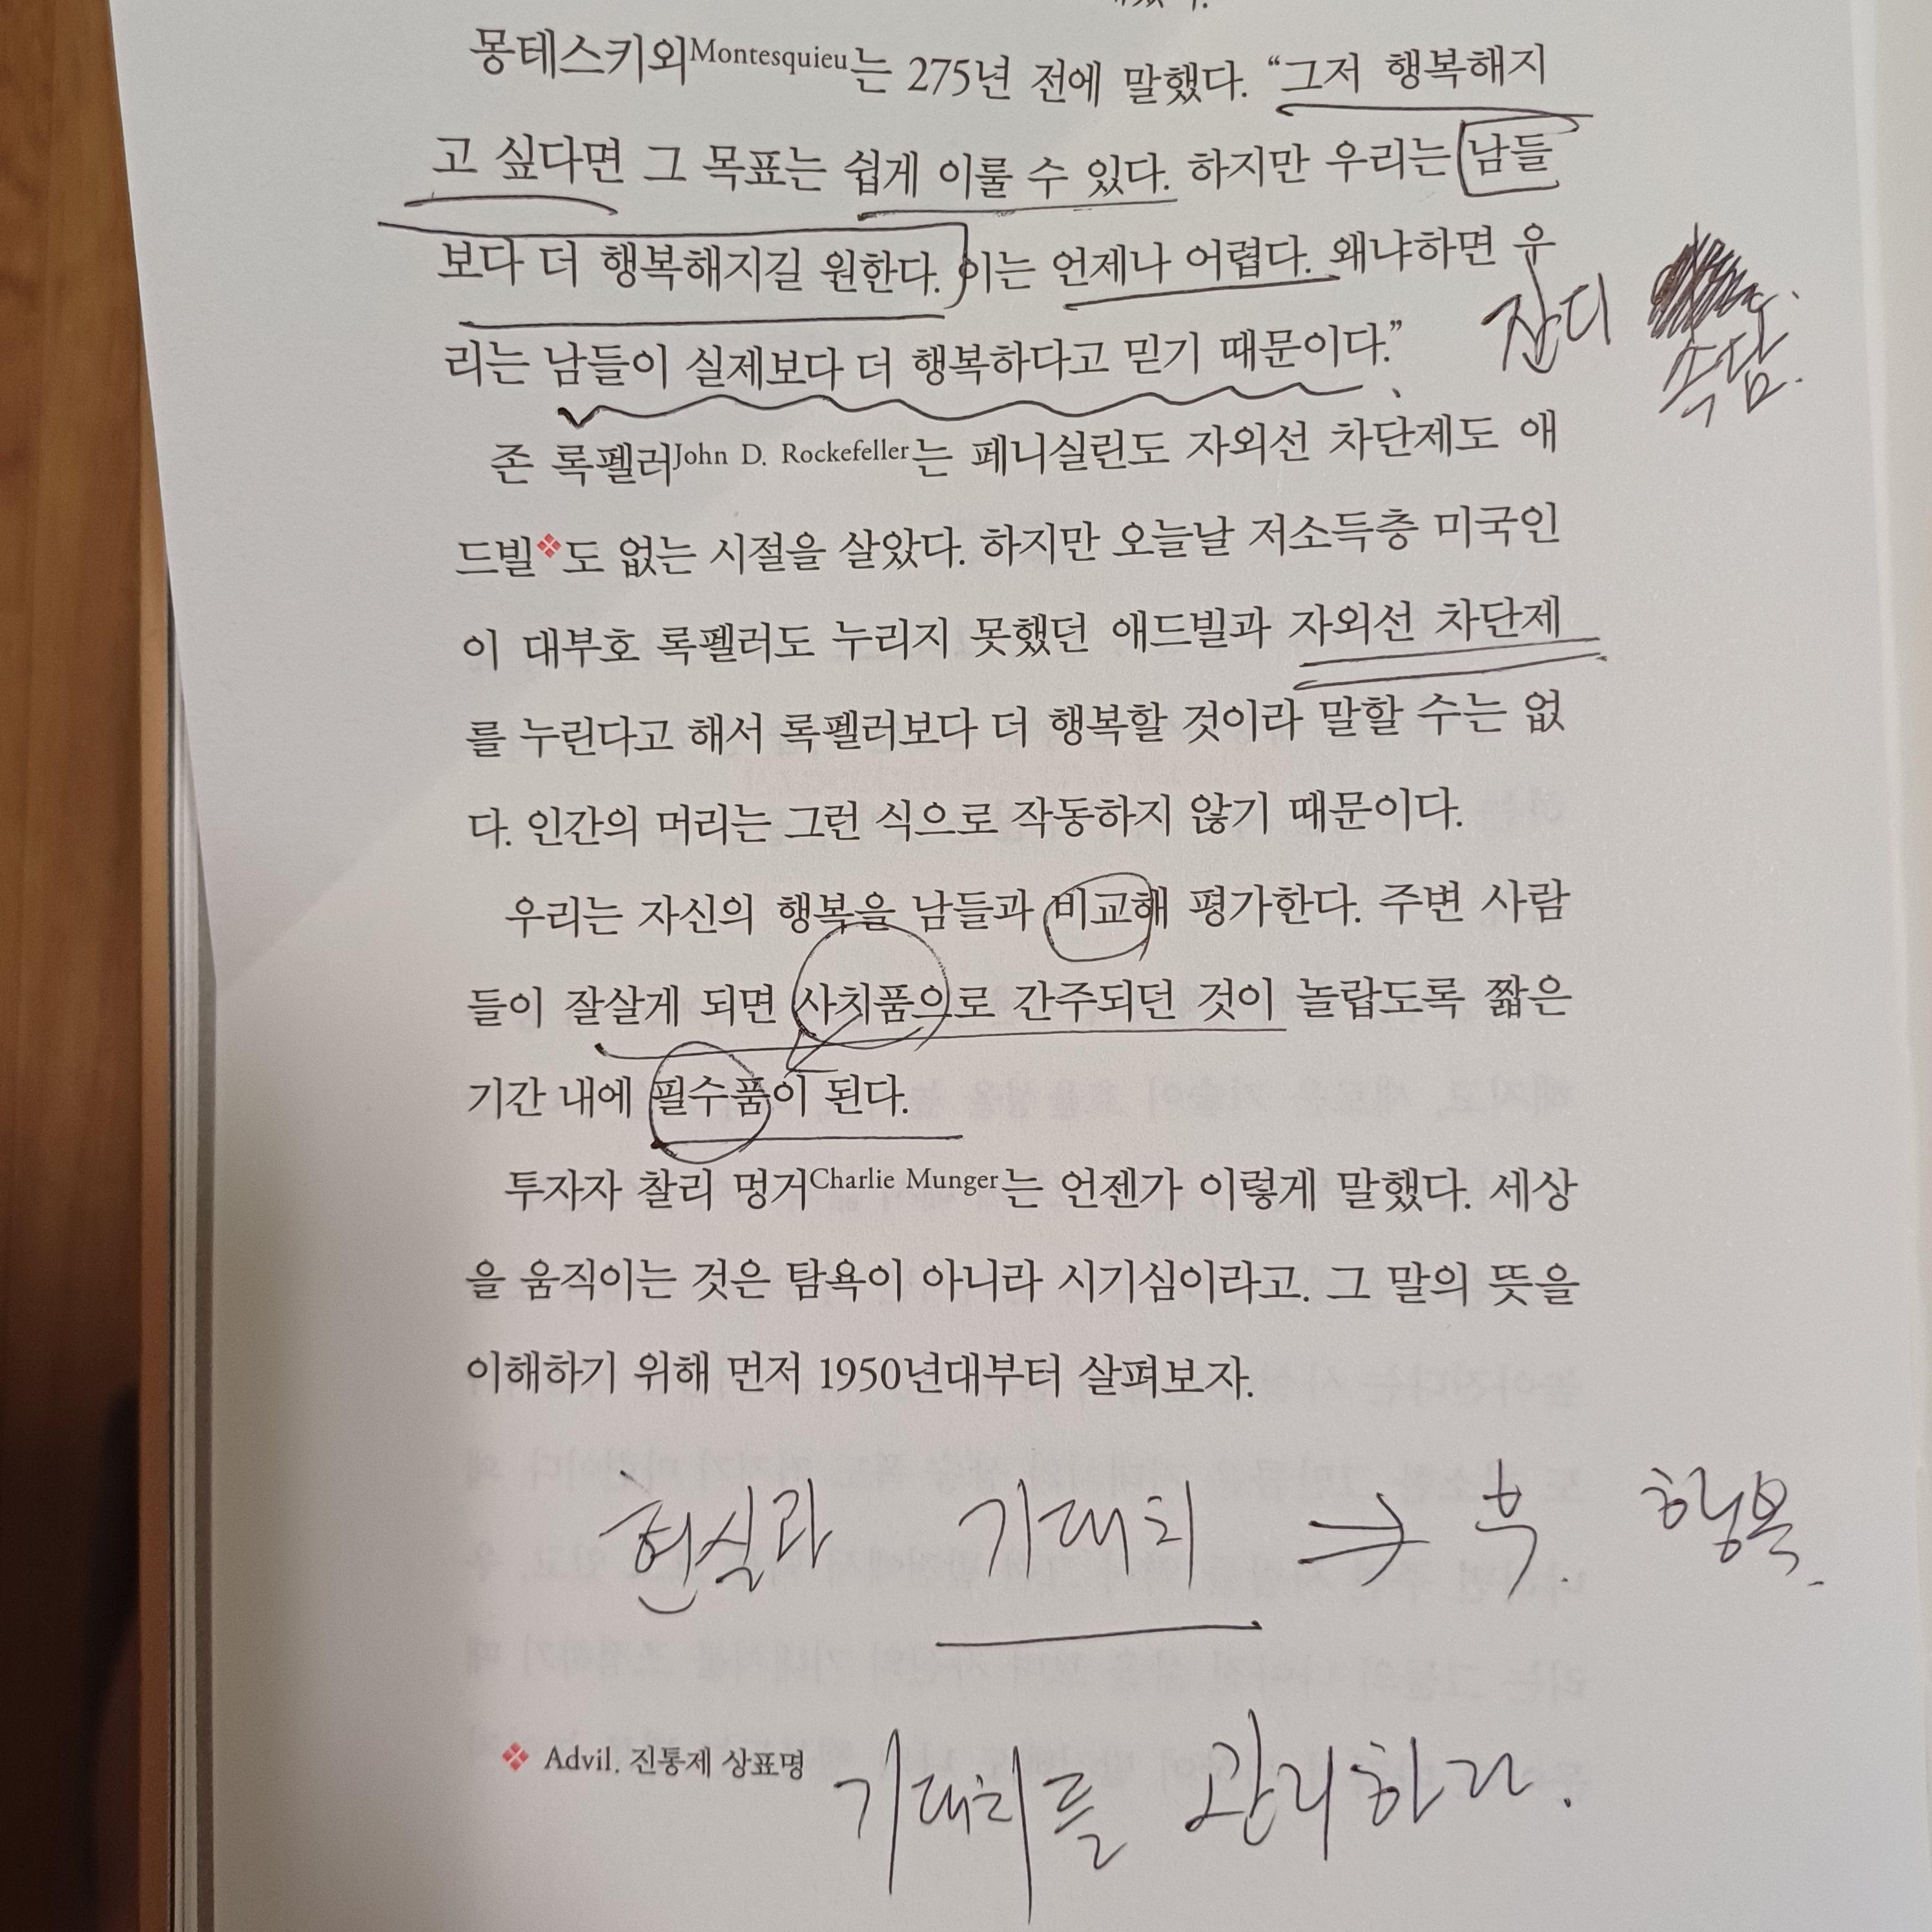 몽테스키외Montesquieu는 275년 전에 말했다. “그저 행복해지
고 싶다면 그 목표는 쉽게 이룰 수 있다. 하지만 우리는 남들
보다 더 행복해지길 원한다. 이는 언제나 어렵다. 왜냐하면 우
잔디
속담.
리는 남들이 실제보다 더 행복하다고 믿기 때문이다.”
존 록펠러John D. Rockefeller는 페니실린도 자외선 차단제도 애
드빌❖도 없는 시절을 살았다. 하지만 오늘날 저소득층 미국인
이 대부호 록펠러도 누리지 못했던 애드빌과 자외선 차단제
를 누린다고 해서 록펠러보다 더 행복할 것이라 말할 수는 없
다. 인간의 머리는 그런 식으로 작동하지 않기 때문이다.
우리는 자신의 행복을 남들과 비교해 평가한다. 주변 사람
들이 잘살게 되면 사치품으로 간주되던 것이 놀랍도록 짧은
기간 내에 필수품이 된다.
투자자 찰리 멍거Charlie Munger는 언젠가 이렇게 말했다. 세상
을 움직이는 것은 탐욕이 아니라 시기심이라고. 그 말의 뜻을
이해하기 위해 먼저 1950년대부터 살펴보자.
현실과 기대치 ⇒ 부. 행복.
❖ Advil. 진통제 상표명
기대치를 관리하라.